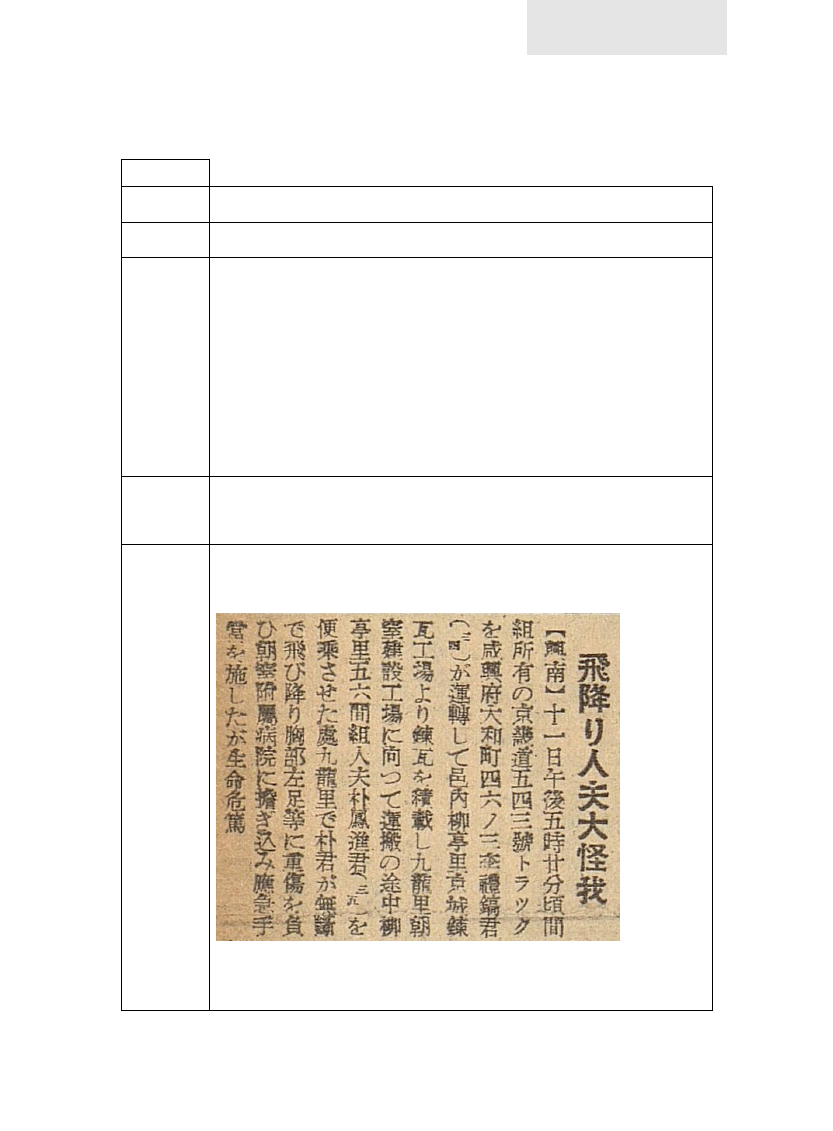 飛降り人夫大怪我
【興南】十一日午後五時廿分頃間
組所有の京畿道五四三號トラック
を咸興府大和町四六ノ三李禮鎬君
が運轉して邑内柳亭里京城錬
瓦工場より錬瓦を積載し九龍里朝
窒建設工場に向つて運搬の途中柳
亭里五六間組人夫朴鳳進君を
便乘させた處九龍里で朴君が無斷
で飛び降り胸部左足等に重傷を負
ひ朝窒附屬病院に擔ぎ込み應急手
當を施したが生命危篤